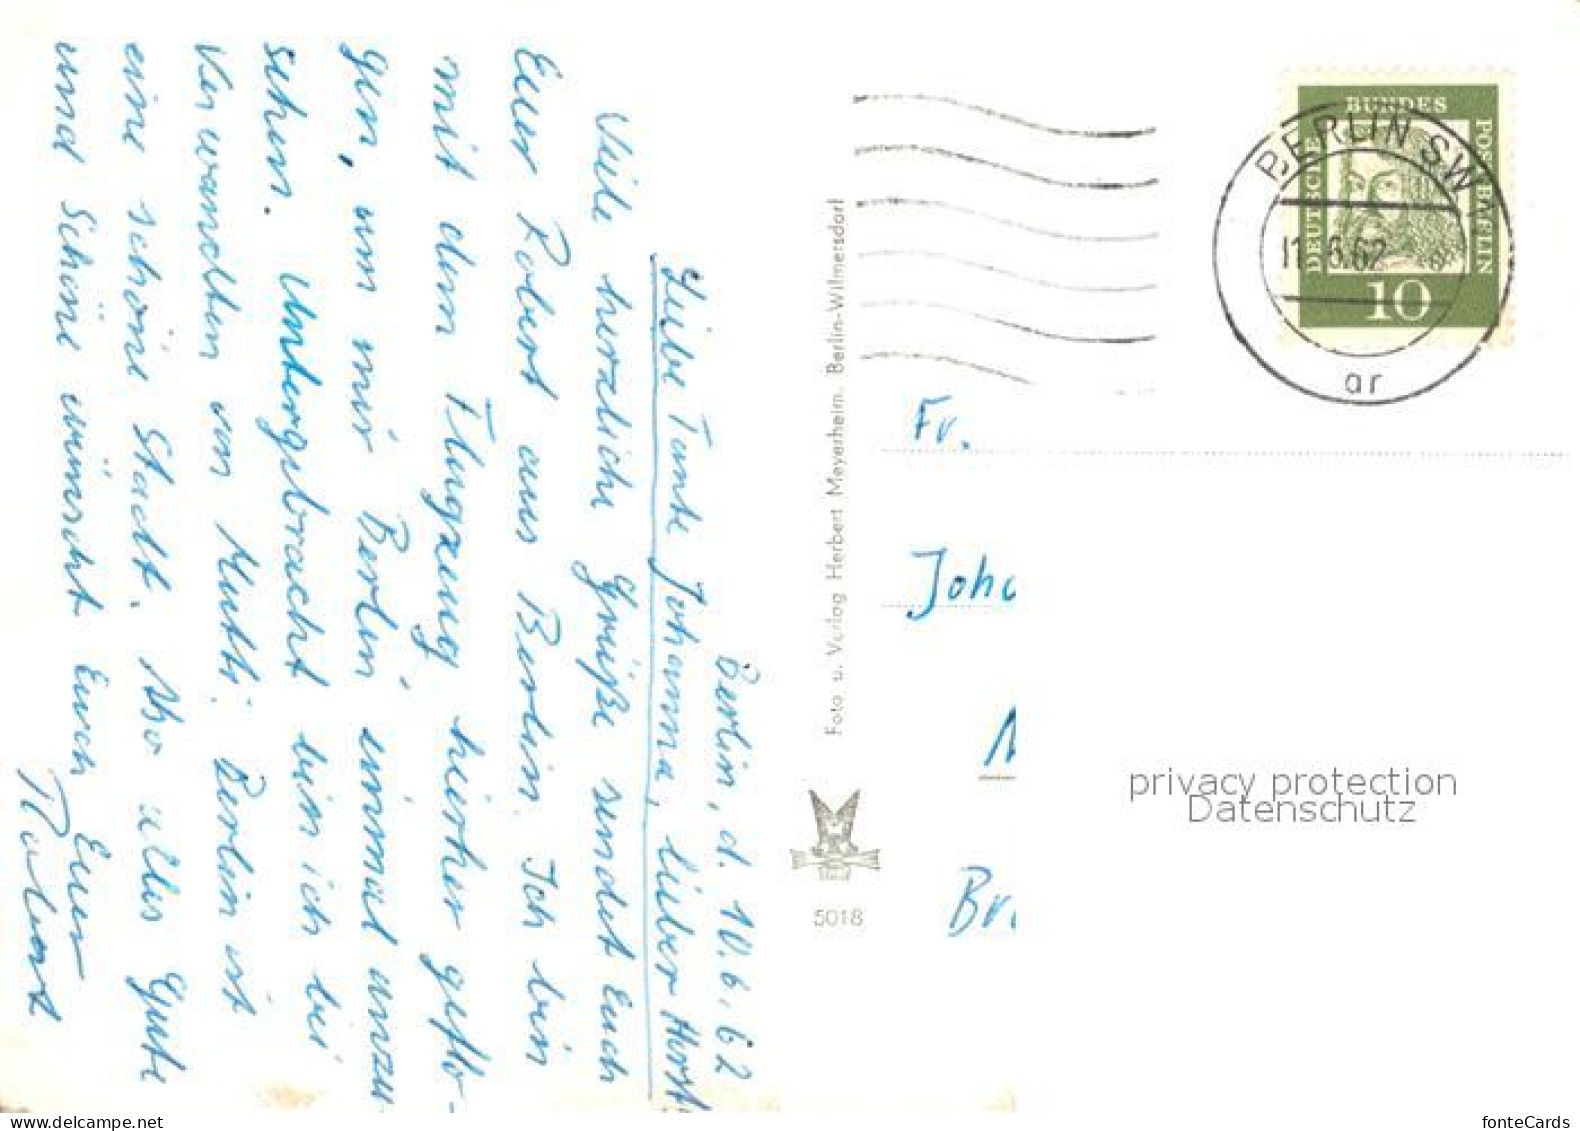 Berlin, d. 10.6.62
Liebe Tante Johanna, lieber Horst
Viele herzliche Grüße sendet Euch
Euer Robert aus Berlin. Ich bin
mit dem Flugzeug hierher geflo-
gen, um mir Berlin einmal anzu-
sehen. Untergebracht bin ich bei
Verwandten von Mutti. Berlin ist
eine schöne Stadt. Also alles Gute
und Schöne wünscht Euch Euer
Robert
Foto u. Verlag Herbert Meyerheim, Berlin-Wilmersdorf
5018
DEUTSCHE BUNDESPOST BERLIN
10
BERLIN SW
11.6.62
ar
Fr.
Joha
Br
privacy protection
Datenschutz
fonteCards